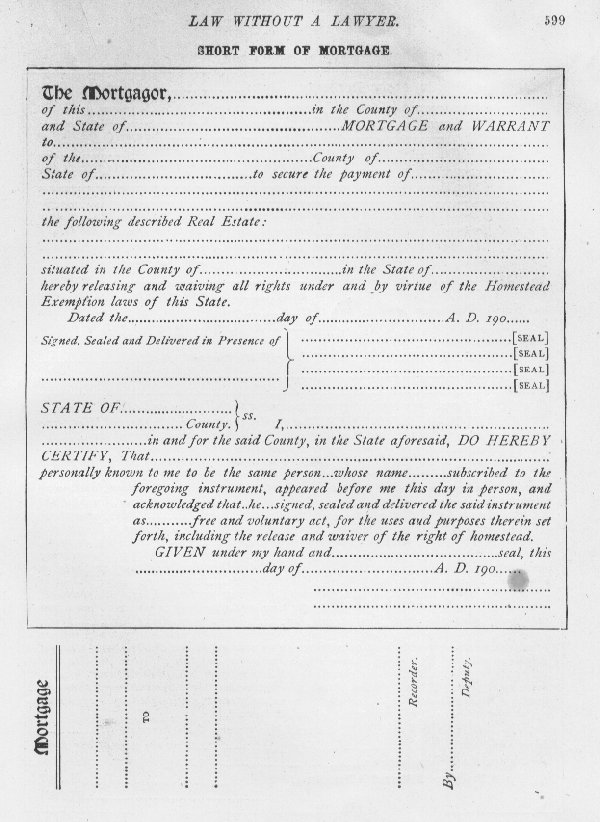 LAW WITHOUT A LAWYER. 599
SHORT FORM OF MORTGAGE
The Mortgagor,
of this in the County of
and State of MORTGAGE and WARRANT
to
of the County of
State of to secure the payment of
the following described Real Estate:
situated in the County of in the State of
hereby releasing and waiving all rights under and by virtue of the Homestead
Exemption laws of this State.
Dated the day of A. D. 190
Signed, Sealed and Delivered in Presence of [SEAL]
[SEAL]
[SEAL]
[SEAL]
STATE OF
County. ss. I,
in and for the said County, in the State aforesaid, DO HEREBY
CERTIFY, That
personally known to me to be the same person...whose name.........subscribed to the
foregoing instrument, appeared before me this day in person, and
acknowledged that..he...signed, sealed and delivered the said instrument
as...........free and voluntary act, for the uses and purposes therein set
forth, including the release and waiver of the right of homestead.
GIVEN under my hand and seal, this
day of A. D. 190
Mortgage
TO
Recorder.
By Deputy.